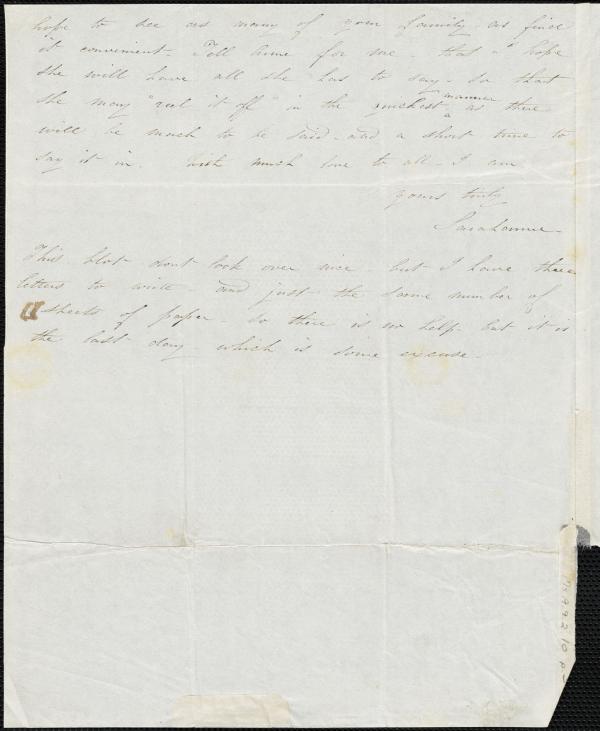 hope to see as many of your family as find
it convenient. Tell Anne for me that I hope
she will have all she has to say so that
she may "reel it off" in the quickest manner as there
will be much to be said - and a short time to
say it in. With much love to all - I am
yours truly
This blot dont look over nice - but I have three
letters to write - and just the same number of
sheets of paper - so there is no help but it is
the last day which is some excuse.